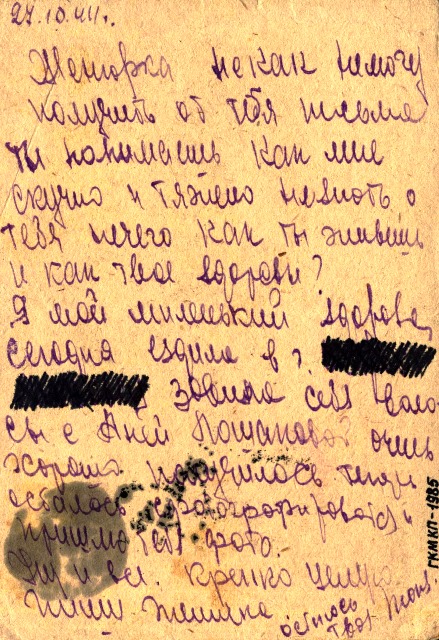 27.10.41г.
Женюрка некак немогу
получить от тебя письма
ты понимаеш как мне
скучно и тяжело незнать о
тебя нечего как ты живёшь
и как твое здоровье?
Я мой миленький здорова,
сегодня ездила в г.
завила себе воло-
сы с Аней Лошаповой очень
хорошо получилось теперь
осталось сфотографироваться и
пришлю тебе фото.
и все. Крепко целую
пиши Женичка
остаюсь
твоя Тоня.
ГКМКП-1985